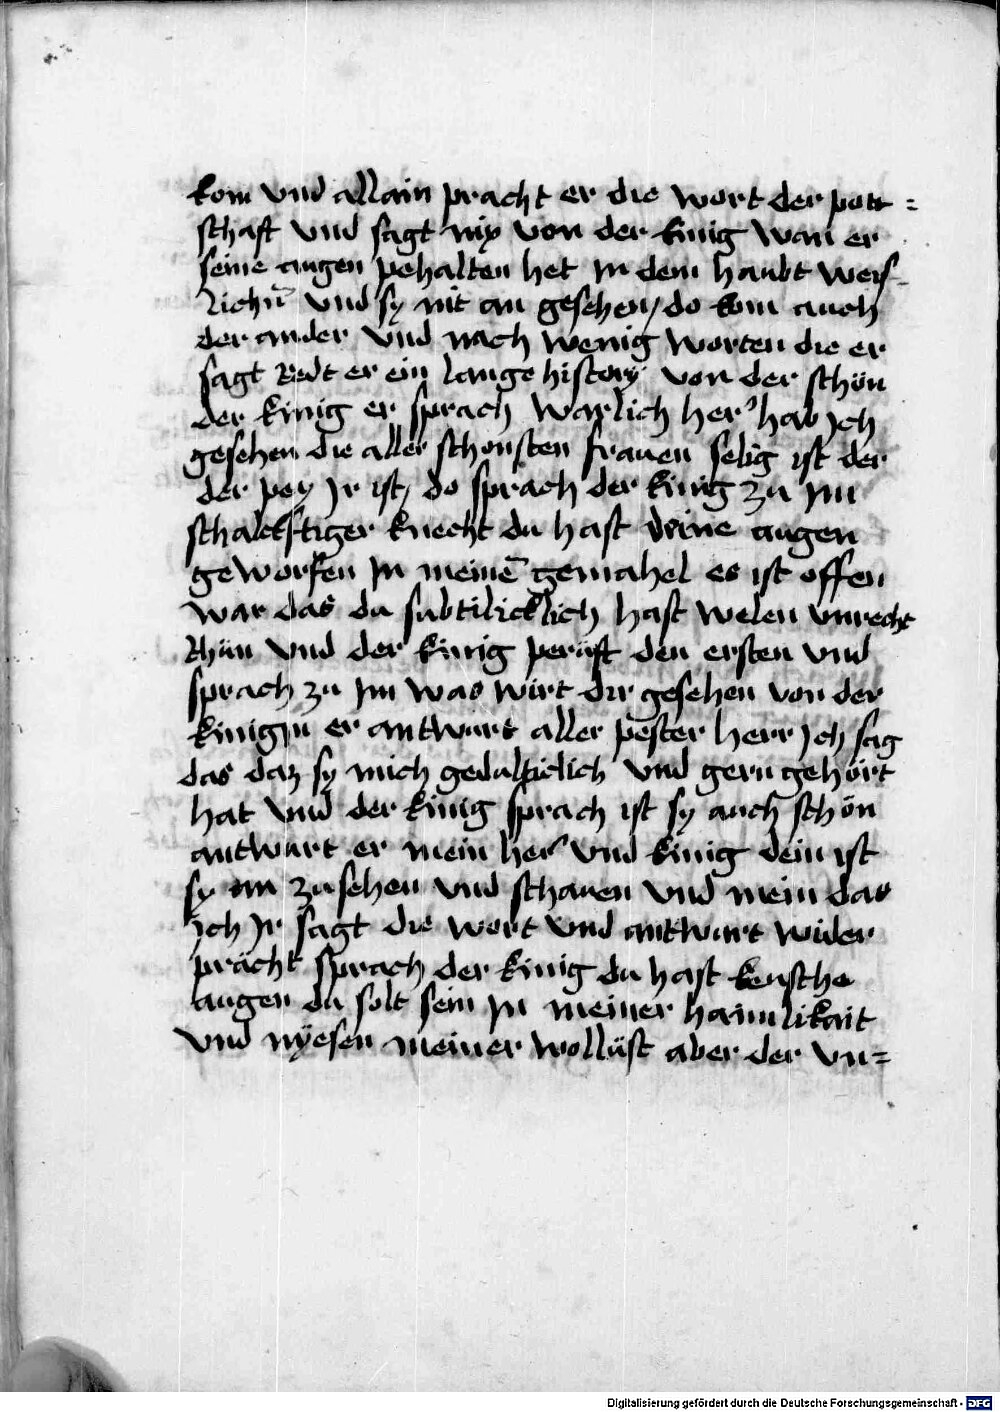 kom vnd allain pracht er die wort der pott =
schaft vnd sagt nix von der kinig wan er
seine augen pehalten het in dem haubt weis-
lichn̄ vnd sy nit an gesehen / do kom auch
der ander vnd nach wenig worten die er
sagt Redt er ein lange history von der schön
der kinig er sprach warlich her' hab ich
gesehen die aller schonsten frauen selig ist der
der pey Ir ist / do sprach der kinig zu im
schalckftiger knecht du hast deine augen
geworfen In meinē gemahel es ist offen
war das du subtilicklich hast welen vnrecht
thün vnd der kinig peruft den ersten vnd
sprach zu Im was wirt dir gesehen von der
kinigin er antwurt aller pester herr Ich sag
das daz sy mich gedultiklich vnd gern gehört
hat vnd der kinig sprach ist sy auch schön
antwurt er mein her vnd kinig dein ist
sy an zu sehen vnd schauen vnd mein das
Ich Ir sagt die wort vnd antwurt wider
prächt sprach der kinig du hast keusche
augen du solt sein In meiner haimlikait
vnd nÿesen meiner wollüst aber der vn=
Digitalisierung gefördert durch die Deutsche Forschungsgemeinschaft - DFG